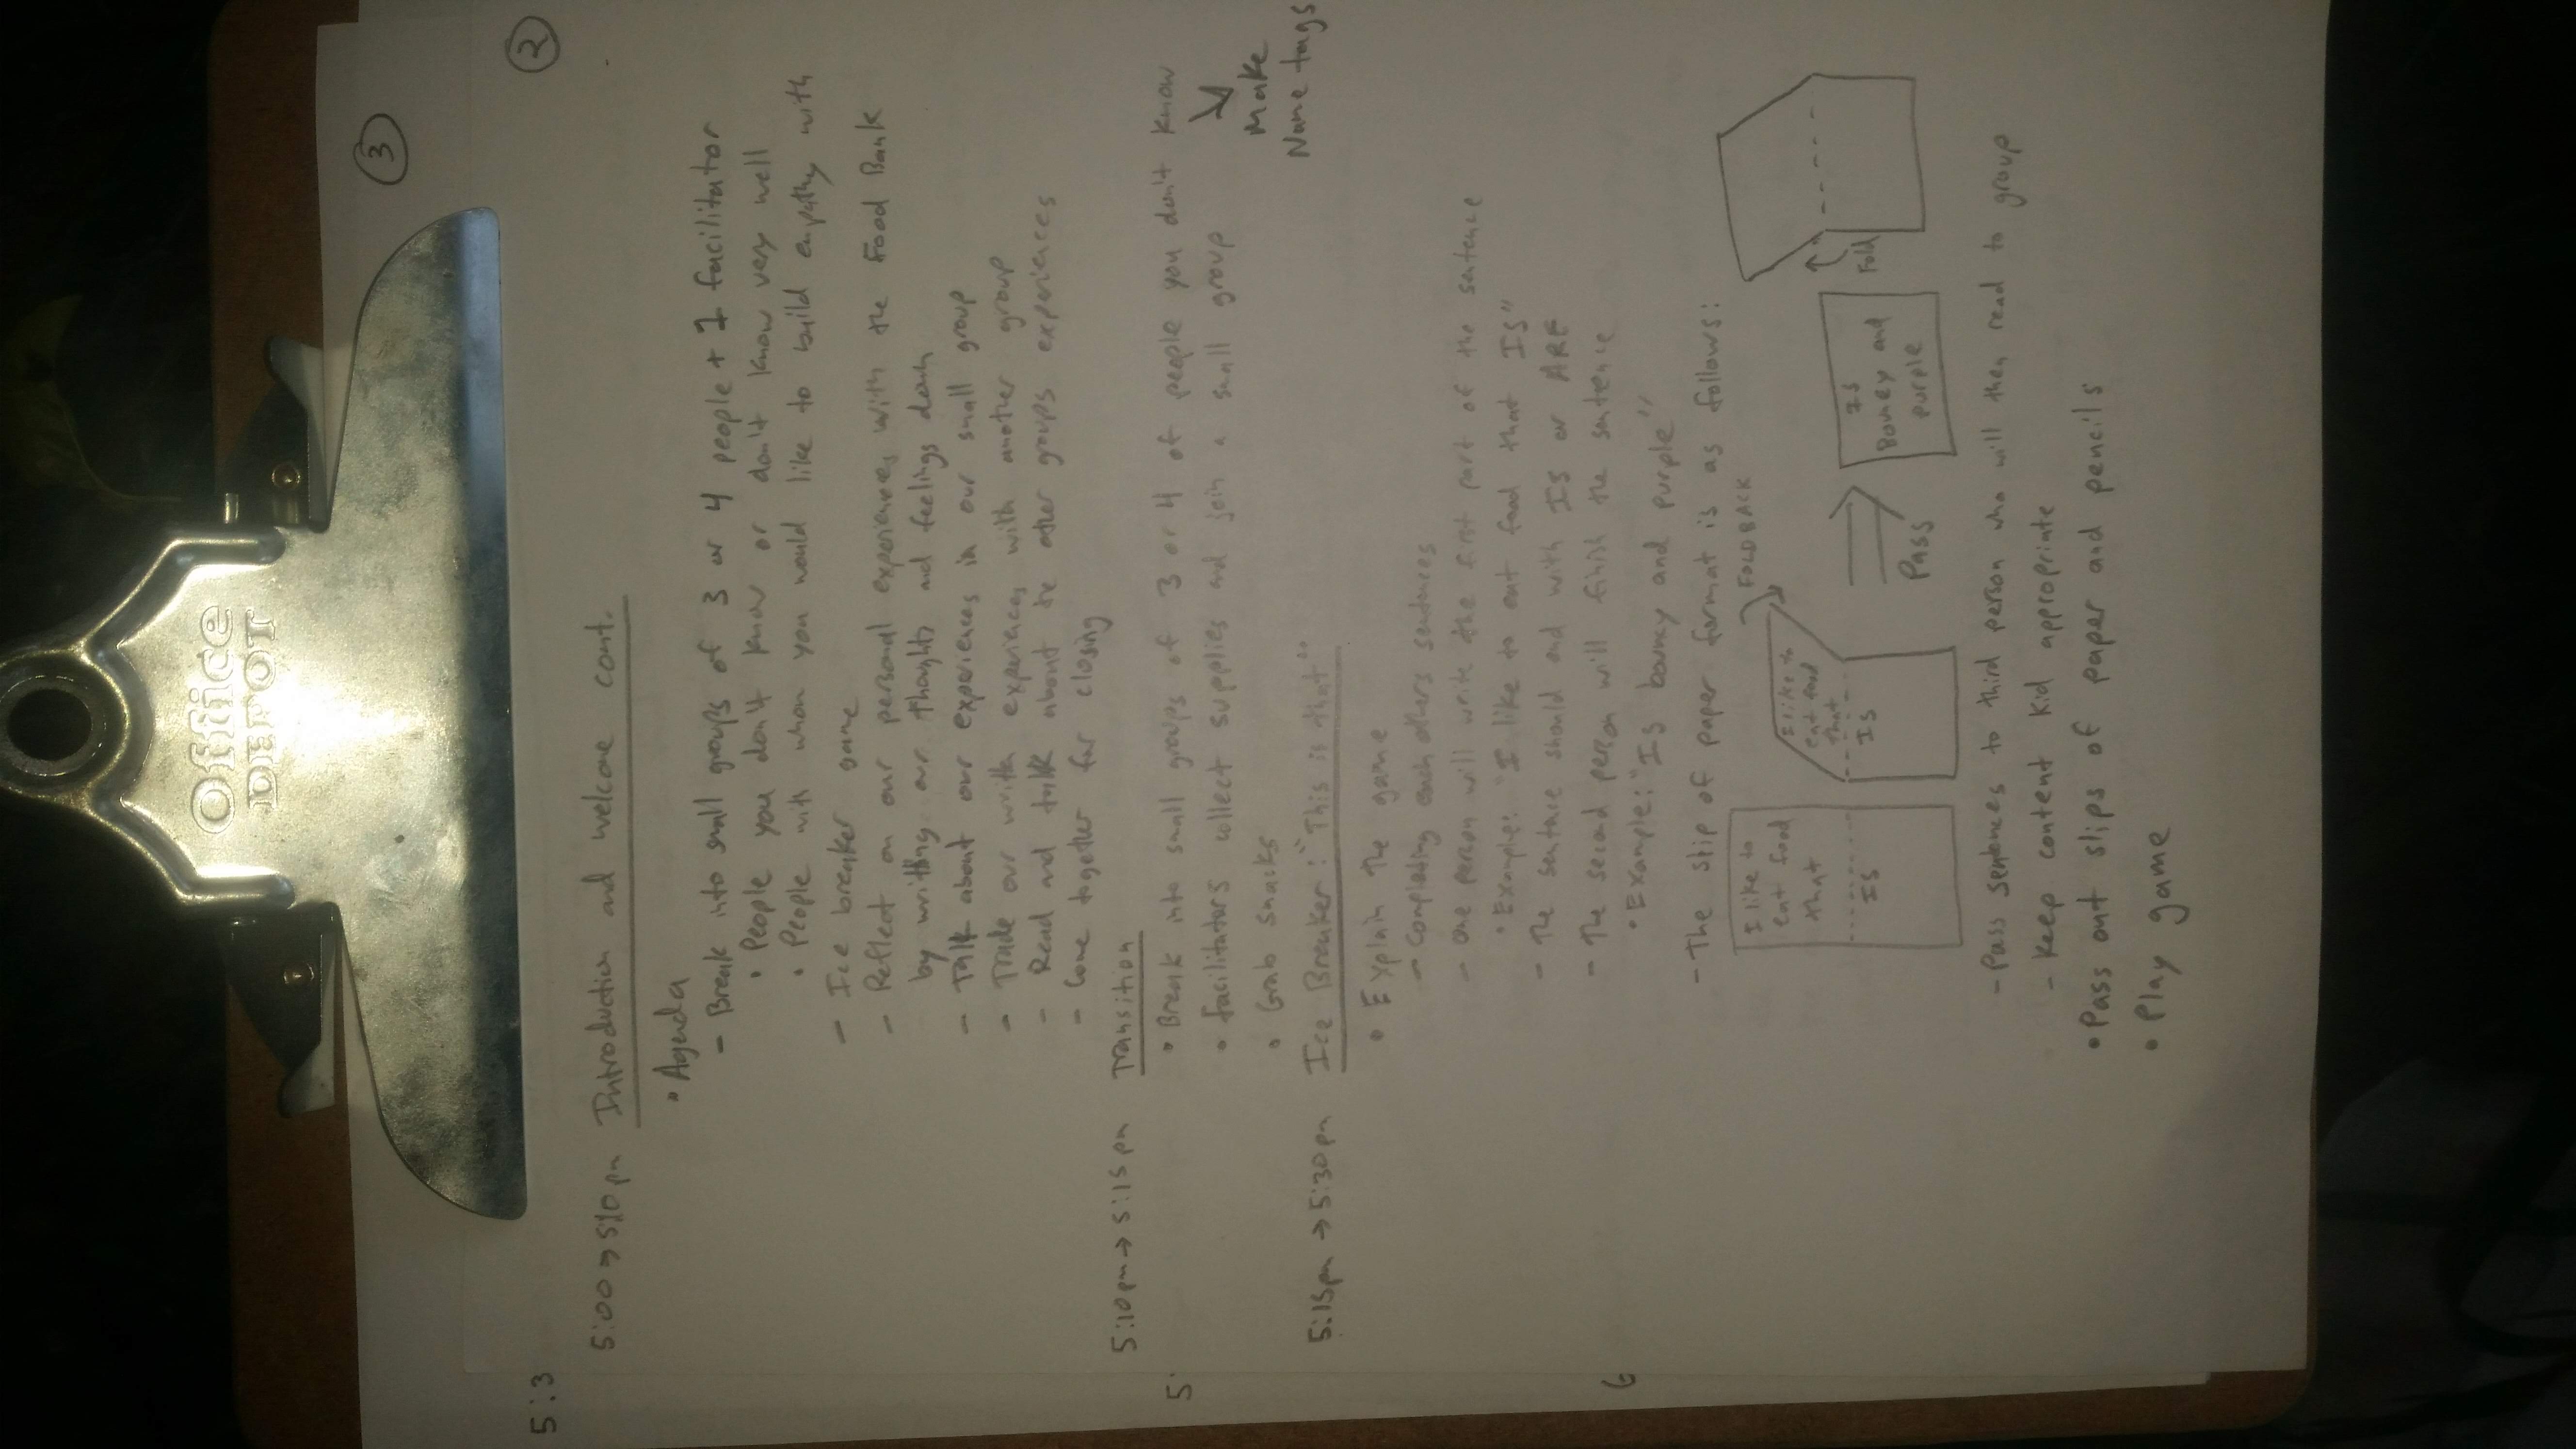 Office
DEPOT
3
5:3
2
5:00 → 5:10 pm Introduction and welcome cont.
• Agenda
- Break into small groups of 3 or 4 people + 1 facilitator
• People you don't know or don't know very well
• People with whom you would like to build empathy with
- Ice breaker game
- Reflect on our personal experiences with the Food Bank
by writing our thoughts and feelings down
- Talk about our experiences in our small group
- Trade our written experiences with another group
- Read and talk about the other groups experiences
- Come together for closing
5:10pm → 5:15pm Transition
5:
• Break into small groups of 3 or 4 of people you don't know
• facilitators collect supplies and join a small group
• Grab snacks
Make
Name tags
5:15pm → 5:30pm Ice Breaker: "This is that"
• Explain the game
- Completing each others sentences
- One person will write the first part of the sentence
• Example: "I like to eat food that IS"
- The sentence should end with IS or ARE
6
- The second person will finish the sentence
• Example: "IS bouncy and purple"
- The slip of paper format is as follows:
I like to
eat food
that
IS
FOLD BACK
I like to
eat food
that
IS
Pass
IS
Bouncy and
purple
Fold
- Pass sentences to third person who will then read to group
- Keep content kid appropriate
• Pass out slips of paper and pencils
• Play game